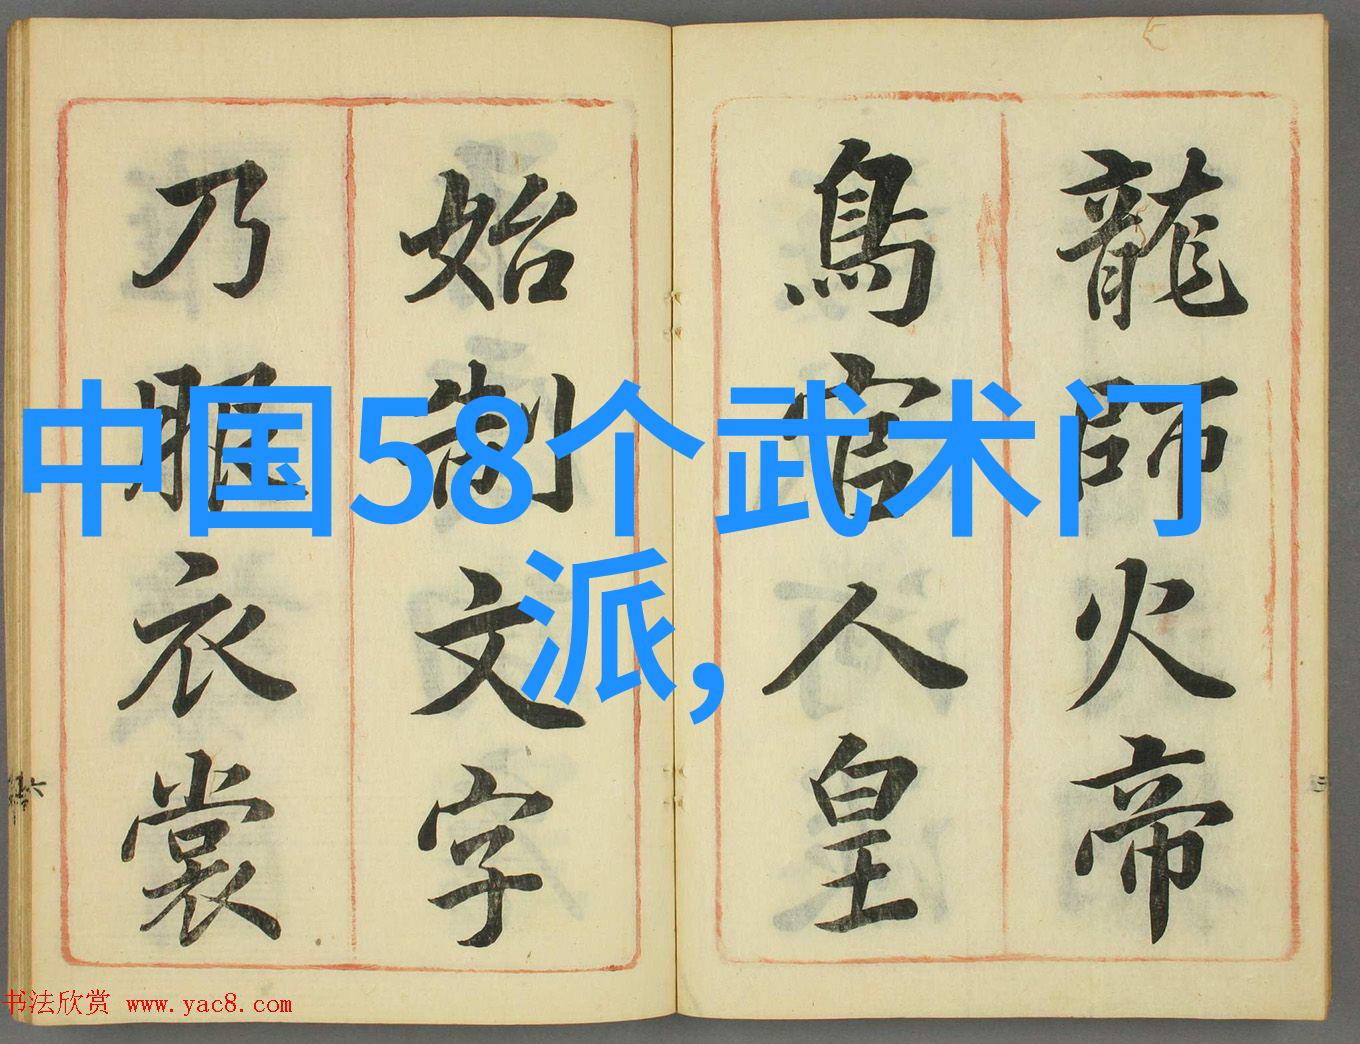 龍師火帝
鳥官人皇
始制文字
乃服衣裳
中国58个武术门
派，
书法欣赏 www.yac8.com